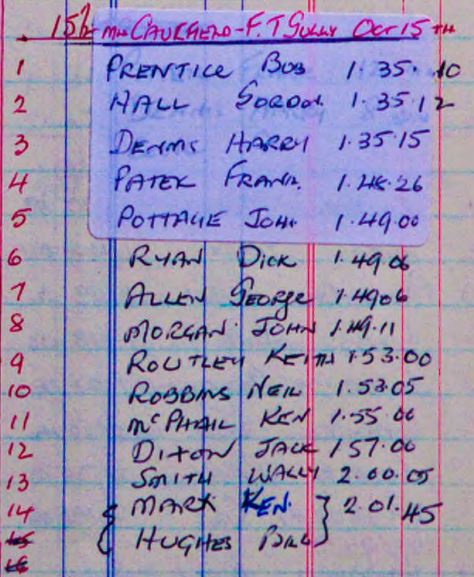 15½ MM CAULFIELD - F.T GULLY OCT 15TH
1 PRENTICE BOB 1.35.10
2 HALL GORDON 1.35.12
3 DENNIS HARRY 1.35.15
4 PATEK FRANK 1.48.26
5 POTTAGE JOHN 1.49.00
6 RYAN DICK 1.49.06
7 ALLEN GEORGE 1.49.06
8 MORGAN JOHN 1.49.11
9 ROUTLEY KEITH 1.53.00
10 ROBBINS NEIL 1.53.05
11 McPHAIL KEN 1.55.00
12 DIXON JACK 1.57.00
13 SMITH WALLY 2.00.05
14 MARK KEN 2.01.45
15 HUGHES BILL
16